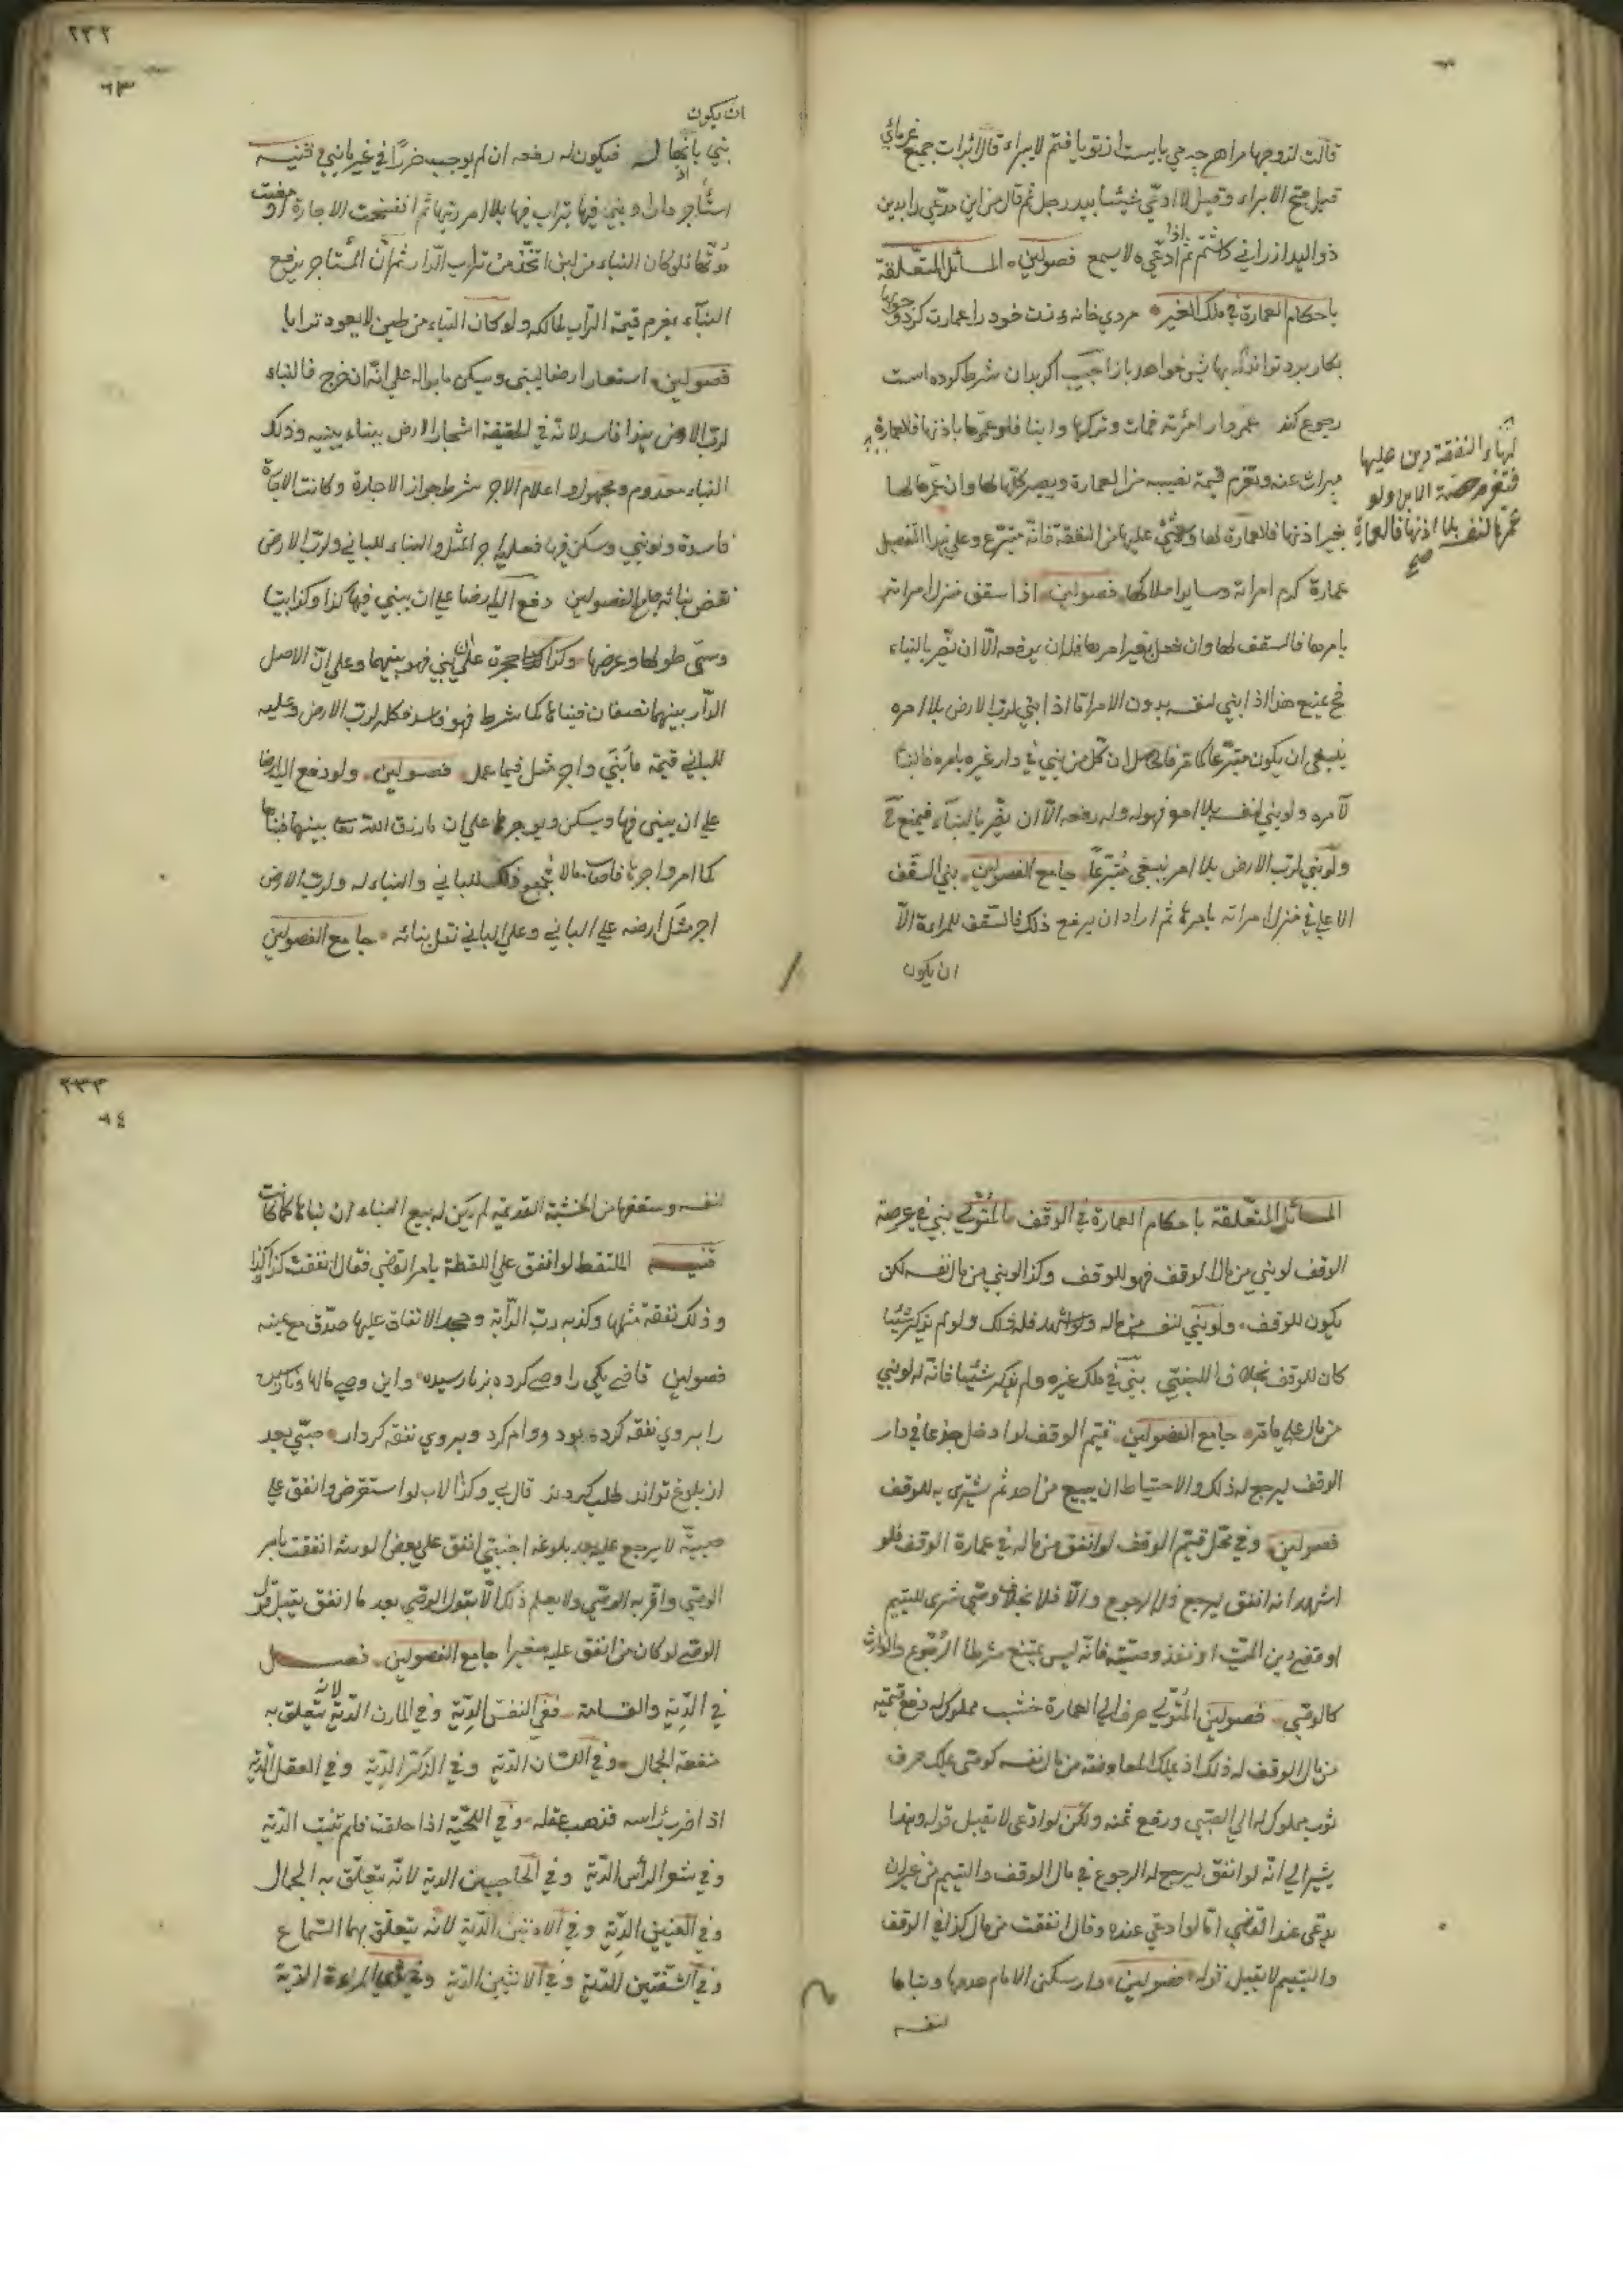 قالت لزوجها مراهر چه می بایست از تو یافتم لا یبراء قال اثبات جمیع غرمائی
قبل یصح الابراء وقیل لا ادعی شیئا بید رجل ثم قال من این مدعی رابدین
ذو الید از رانی کاشتم ثم اذا ادعی لا یسمع فصولین المسائل المتعلقة
باحکام العمارة فی ملک الغیر مردی خانه زنت خود را عمارت کرد
بکار برد تواند که بها شی خواهد باز اجیب اکر بدان شرط کرده است
رجوع کند عمر دار امرأته فمات وترکها وابنا فلو عمرها باذنها فالعمارة
میراث عنه وتغرم قیمة نصیبه من العمارة ویصیر کلها لها وان عمرها لها
بغیر اذنها فالعمارة لها ولا شئ علیها من النفقة فانه متبرع وعلی هذا التفصیل
عمارة کرم امرأته وسایر املاکها فصولین اذا سقف منزل امرأته
بامرها فالسقف لها وان فعل بغیر امرها فله ان یرفعه الا ان یضر بالبناء
فح یمنع هذا اذا بنی لنفسه بدون الامر اما اذا بنی لرب الارض بلا امره
ینبغی ان یکون متبرعا کما مر فالحاصل ان کل من بنی فی دار غیره بامره فالبناء
لآمره ولو بنی لنفسه بلا امره فهو له وله رفعه الا ان یضر بالبناء فیمنع
ولو بنی لرب الارض بلا امر ینبغی متبرعا جامع الفصولین بنی السقف
الاعلی فی منزل امرأته بامرها ثم اراد ان یرفع ذلک فالسقف للمراءة الا
ان یکون
لها والنفقة دین علیها
فتغرم حصة الابن ولو
عمرها لنفسه بلا اذنها فالعمارة
صح
٢٣٢
٦٣
ان یکون
بنی بانها له فیکون له رفعه ان لم یوجب ضررا فی غیر ما بنی قنیه
استأجر دارا وبنی فیها بتراب فیها بلا امر ربها ثم انفسخت الاجارة او مضت
مدتها فلو کان البناء من لبن اتخذ من تراب الدار ثم ان المستاجر یرفع
البناء یغرم قیمة التراب لمالکه ولو کان البناء من طین لا یعود ترابا
فصولین استعار ارضا لیبنی ویسکن ما بدا له علی انه ان خرج فالبناء
لرب الارض فهذا فاسد لانه فی الحقیقة استجار الارض ببناء یبنیه وذلک
البناء معدوم ومجهول واعلام الاجر شرط جواز الاجارة وکانت الاجارة
فاسدة ولو بنی وسکن فیها فعلیه اجر المثل والبناء للبانی ولرب الارض
نقض بنائه جامع الفصولین دفع الیه ارضا علی ان یبنی فیها کذا وکذا بیتا
وسمی طولها وعرضها وکذا کذا حجرة علی ان یبنی فهو بینهما وعلی ان الاصل
الدار بینهما نصفان فبناها کما شرط فهو فاسد وکله لرب الارض وعلیه
للبانی قیمة ما بنی واجر مثل فیما عمل فصولین ولو دفع الیه ارضا
علی ان یبنی فیها ویسکن ویوجرها علی ان ما رزق الله تعا بینهما فبناها
کما امر واجرها فاصاب مالا فجمیع ذلک للبانی والبناء له ولرب الارض
اجر مثل ارضه علی البانی وعلی البانی نقل بنائه جامع الفصولین
المسائل المتعلقة باحکام العمارة فی الوقف المتولی بنی فی عرصة
الوقف لو بنی من مال الوقف فهو للوقف وکذا لو بنی من مال نفسه لکن
یکون للوقف ولو بنی لنفسه من ماله ولو اشهد فله ذلک ولو لم یذکر شیئا
کان للوقف بخلاف الاجنبی بنی فی ملک غیره ولم یذکر شیئا فانه له لو بنی
من ماله علی ما مر جامع الفصولین قیم الوقف لو ادخل جذعا فی دار
الوقف لیرجع له ذلک والاحتیاط ان یبیع من احد ثم یشتری به للوقف
فصولین وفی محل قیم الوقف لو انفق من ماله فی عمارة الوقف فلو
اشهد انه انفق لیرجع فله الرجوع والا فلا بخلاف وصی شری للیتیم
او قضی دین المیت او نفذ وصیته فانه لیس بمتبرع شرط الرجوع والوارث
کالوصی فصولین المتولی صرف الی العمارة خشب مملوک له دفع قیمته
من مال الوقف له ذلک اذ یملک المعاوضة من مال نفسه کوصی یملک صرف
ثوب مملوک له الی الصبی ورفع ثمنه ولکن لو ادعی لا یقبل قوله وهذا
یشیر الی انه لو انفق لیرجع له الرجوع فی مال الوقف والیتیم من غیر ان
یدعی عند القاضی اما لو ادعی عنده وقال انفقت من مالی کذا فی الوقف
والیتیم لا یقبل قوله فصولین دار سکنی الامام هدمها وبناها
لنفسه
٢٣٣
٦٤
لنفسه وسقفها من الخشبة القدیمة لم یکن له بیع البناء ان بناها کما کانت
قنیه الملتقط لو انفق علی اللقطة بامر القاضی فقال انفقت کذا کذا
وذلک نفقة مثلها وکذبه رب الدابة وجحد الانفاق علیها صدق مع یمینه
فصولین قاضی یکی را وصی کرده بر نارسیده واین وصی مالها
را بر وی نفقه کرده بود ووام کرد وبر وی نفقه کردار صبی بعد
از بلوغ تواند طلب کردند قال بی وکذا الاب لو استقرض وانفق علی
صبیه لا یرجع علیه بعد بلوغه اجنبی انفق علی بعض الورثه انفقت بامر
الوصی واقر به الوصی ولا یعلم ذلک الا بقول الوصی بعد ما انفق یقبل قول
الوصی لو کان من انفق علیه صغیرا جامع الفصولین فصل
فی الدیة والقسامة ففی النفس الدیة وفی المارن الدیة لانه یتعلق به
منفعة الجمال وفی اللسان الدیة وفی الذکر الدیة وفی العقل الدیة
اذا ضرب رأسه فذهب عقله وفی اللحیة اذا حلقت فلم تنبت الدیة
وفی شعر الرأس الدیة وفی الحاجبین الدیة لانه یتعلق به الجمال
وفی العینین الدیة وفی الاذنین الدیة لانه یتعلق بهما السماع
وفی الشفتین الدیة وفی الانثیین الدیة وفی ثدیی المراءة الدیة